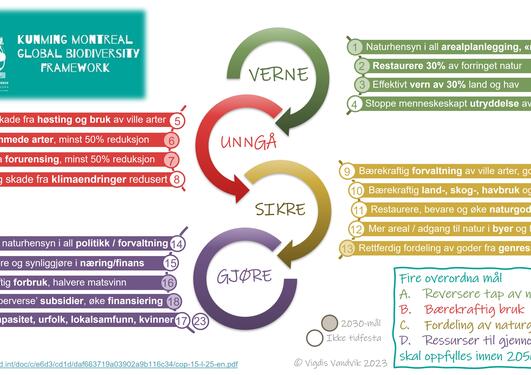 KUNMING MONTREAL
GLOBAL BIODIVERSITY
FRAMEWORK
VERNE
1 Naturhensyn i all arealplanlegging,
2 Restaurere 30% av forringet natur
3 Effektivt vern av 30% land og hav
4 Stoppe menneskeskapt utryddelse
UNNGÅ
skade fra høsting og bruk av ville arter 5
arter, minst 50% reduksjon 6
forurensing, minst 50% reduksjon 7
skade fra klimaendringer redusert 8
SIKRE
9 Bærekraftig forvaltning av ville arter,
10 Bærekraftig land-, skog-, havbruk
11 Restaurere, bevare og øke
12 Mer areal / adgang til natur i byer
13 Rettferdig fordeling av goder fra
GJØRE
naturhensyn i all politikk / forvaltning 14
re og synliggjøre i næring/finans 15
forbruk, halvere matsvinn 16
subsidier, øke finansiering 18
urfolk, lokalsamfunn, kvinner 17 23
2030-mål
Ikke tidfesta
Fire overordna mål
A. Reversere tap av
B. Bærekraftig bruk
C. Fordeling av
D. Ressurser til
skal oppfylles innen
© Vigdis Vandvik 2023
d.int/doc/c/e6d3/cd1d/daf663719a03902a9b116c34/cop-15-l-25-en.pdf